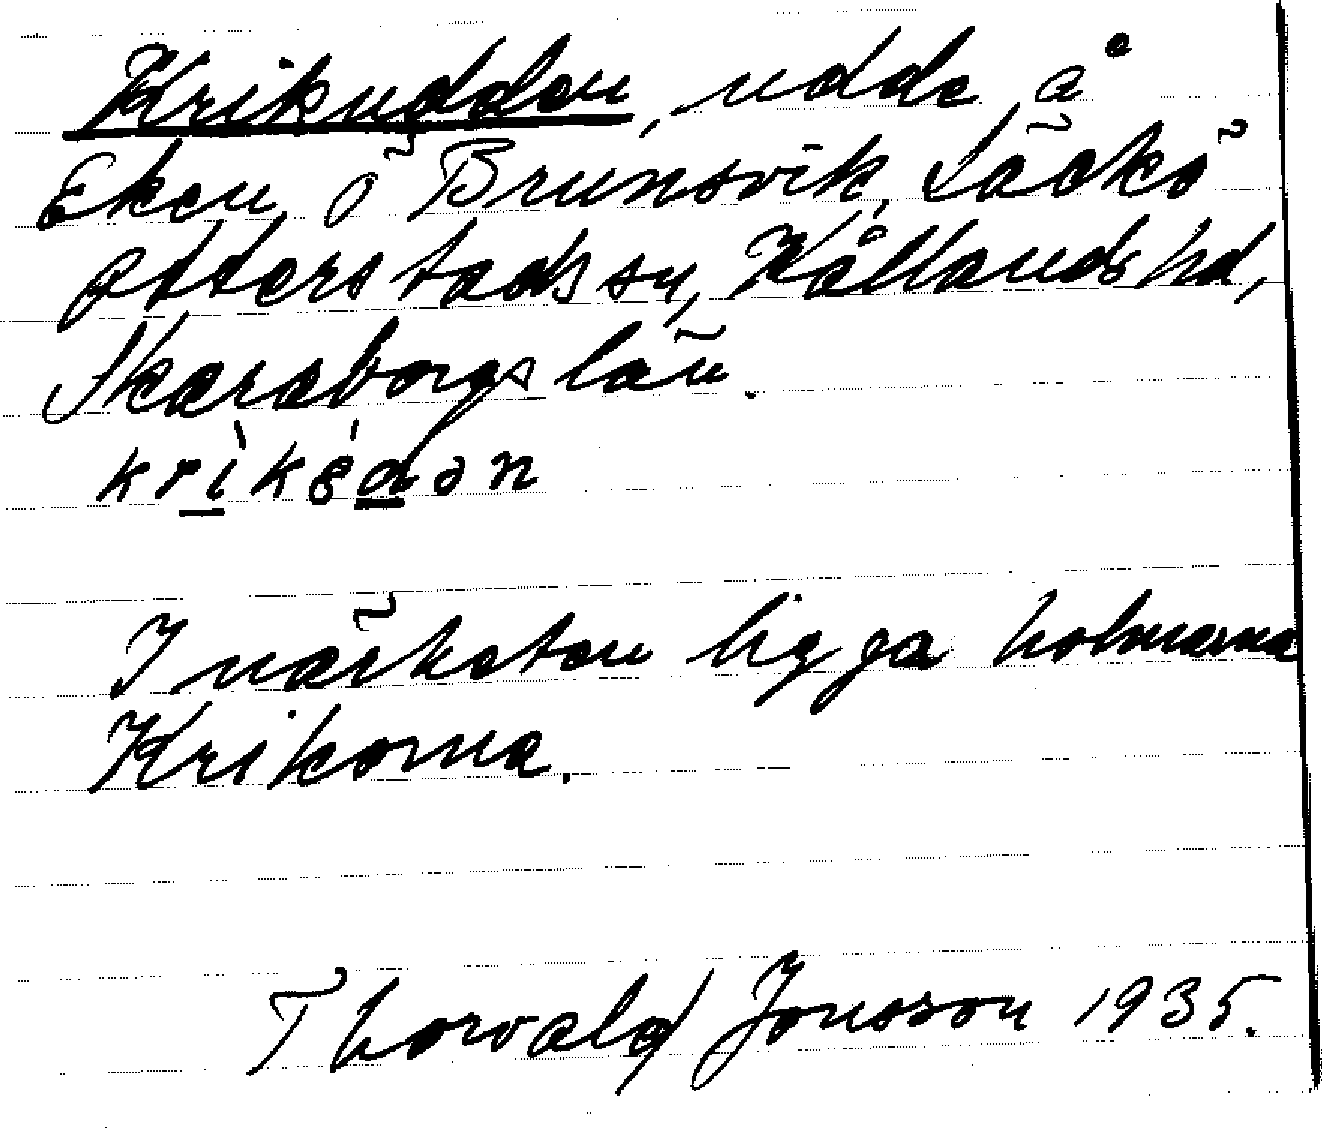 Krikudden, udde å
Eken ö Brunsvik, Läckö
Otterstads sn, Kållands hd,
Skaraborgs län.
I närheten ligga holmarna
Krikorna.
Thorvald Jonsson 1935.